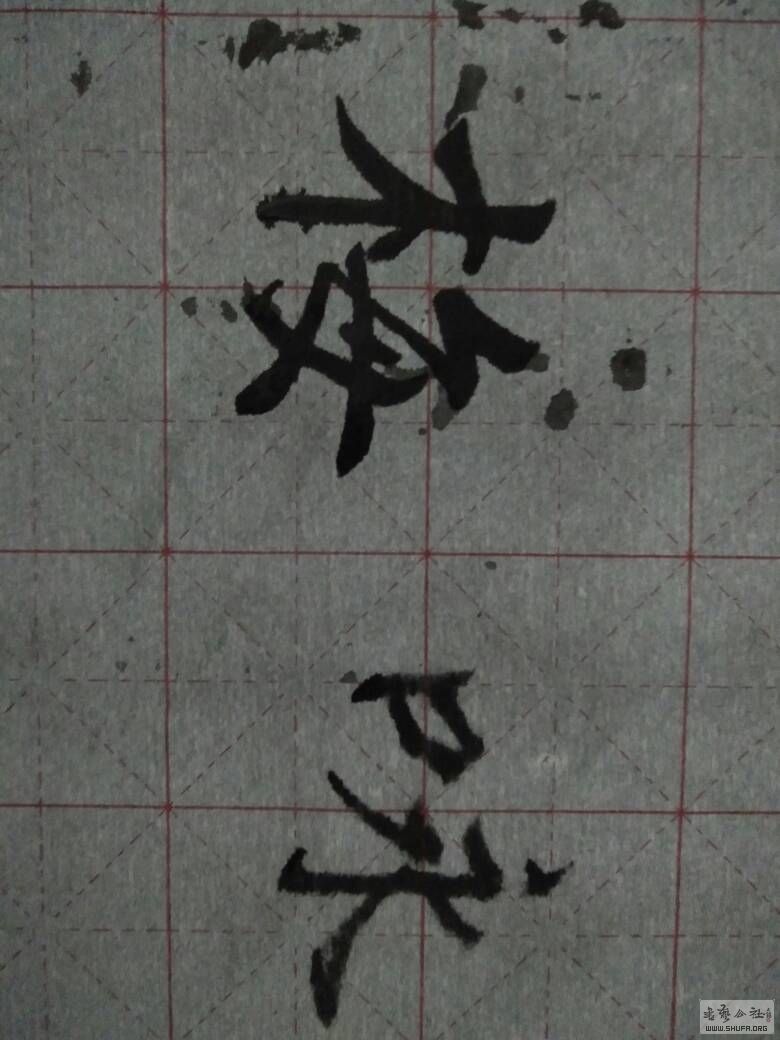 梭咏
书艺公社
WWW.SHUFA.ORG